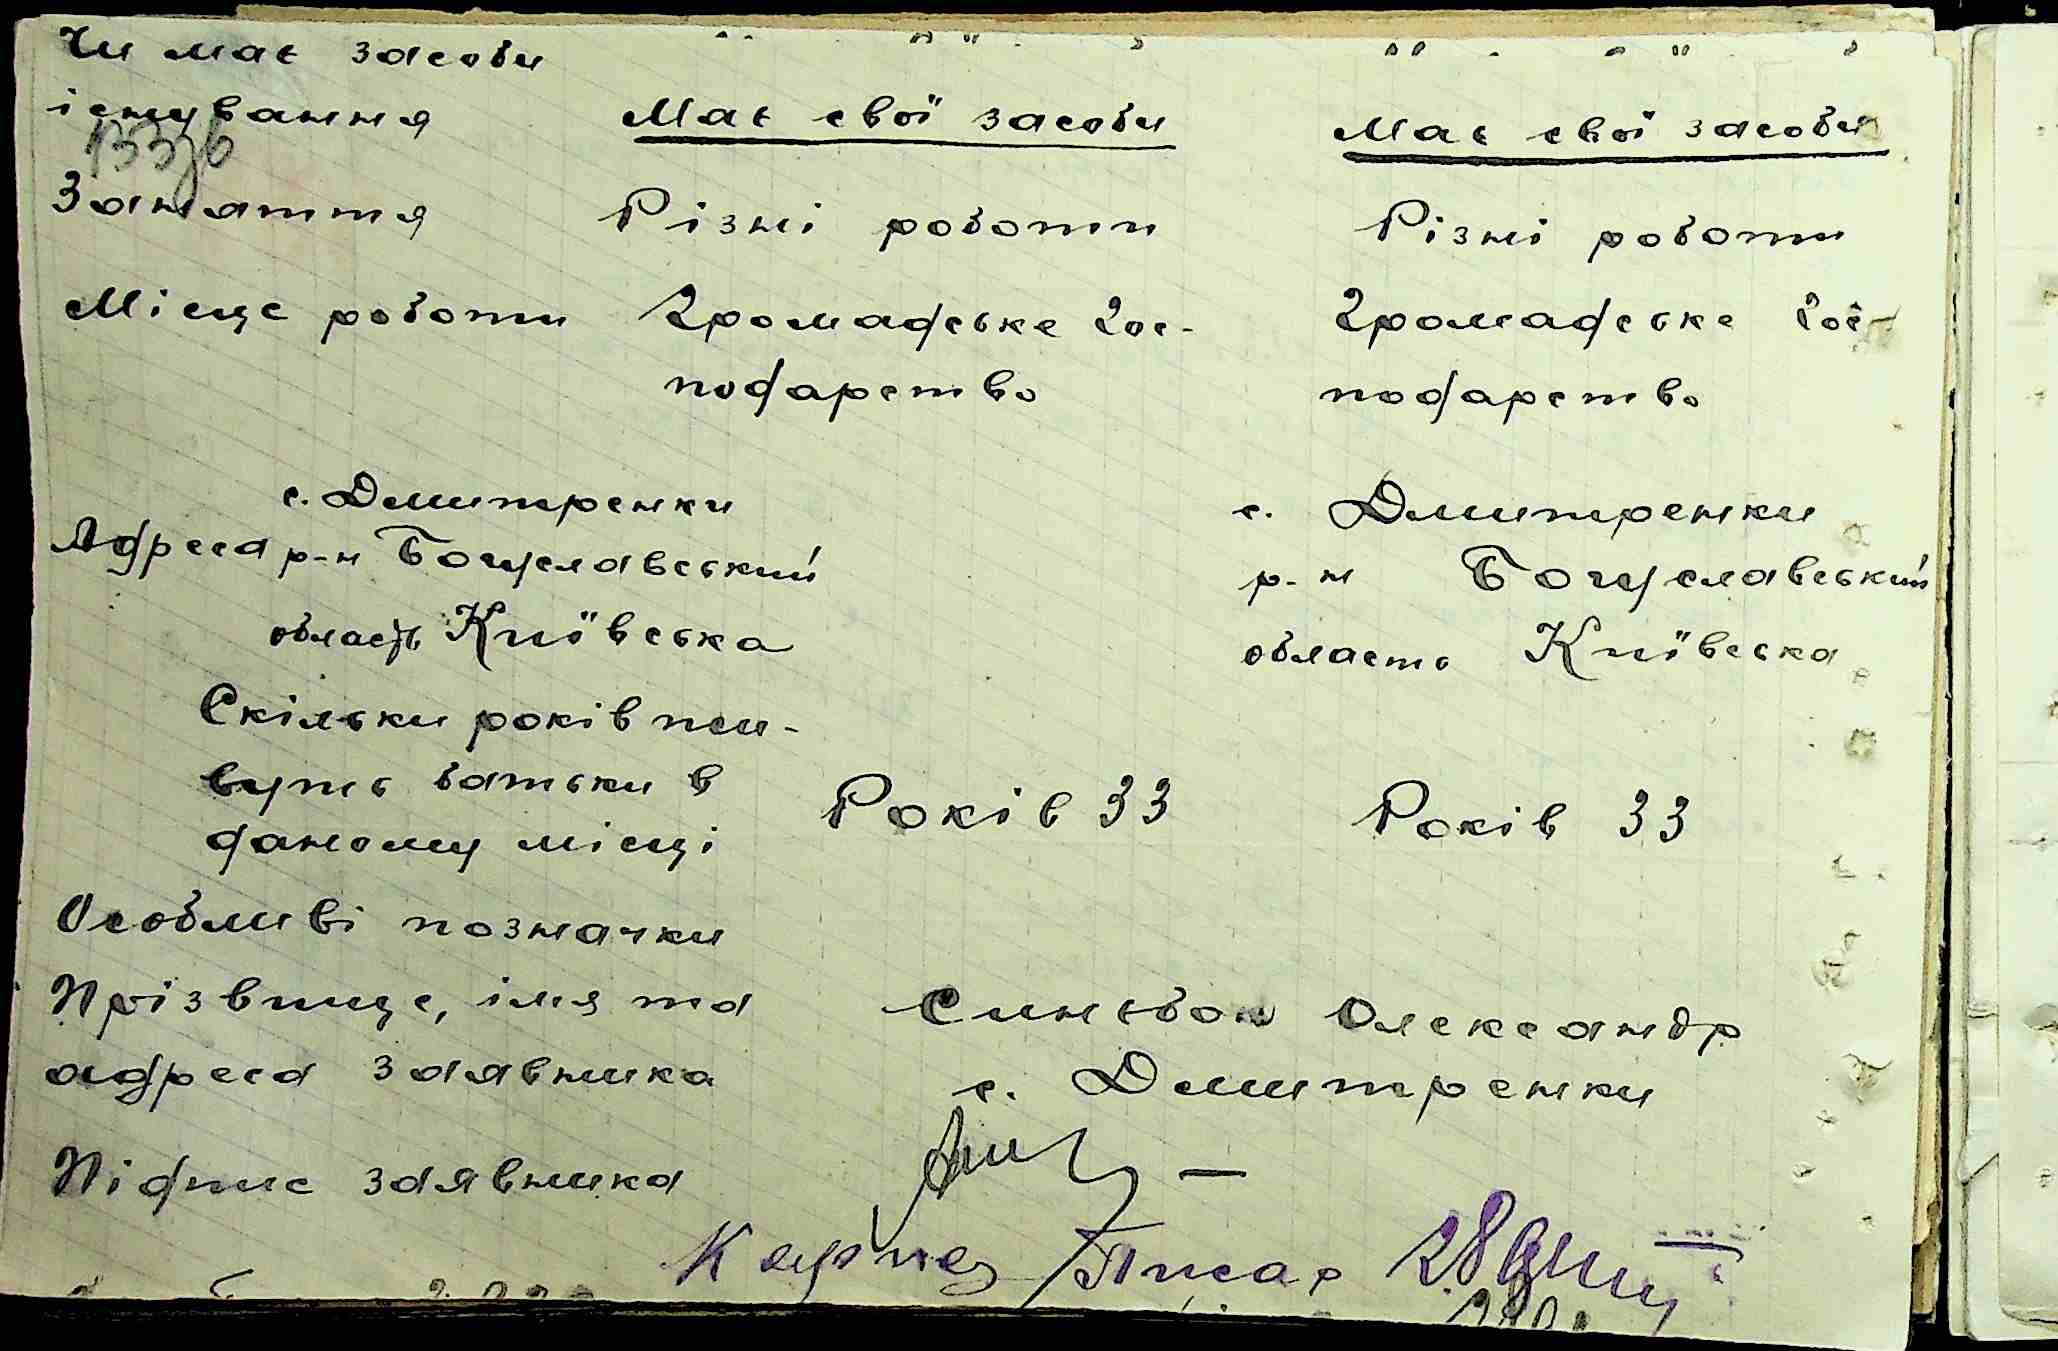 Чи має засоби
існування Має свої засоби Має свої засоби
Заняття Різні роботи Різні роботи
Місце роботи Громадське гос- Громадське гос-
подарство подарство
с. Дмитренки с. Дмитренки
Адреса р-н Богуславський р-н Богуславський
область Київська область Київська
Скільки років жи-
вуть батьки в Років 33 Років 33
даному місці
Особливі позначки
Прізвище, імя та Олександр
адреса заявника с. Дмитренки
Підпис заявника
Писар